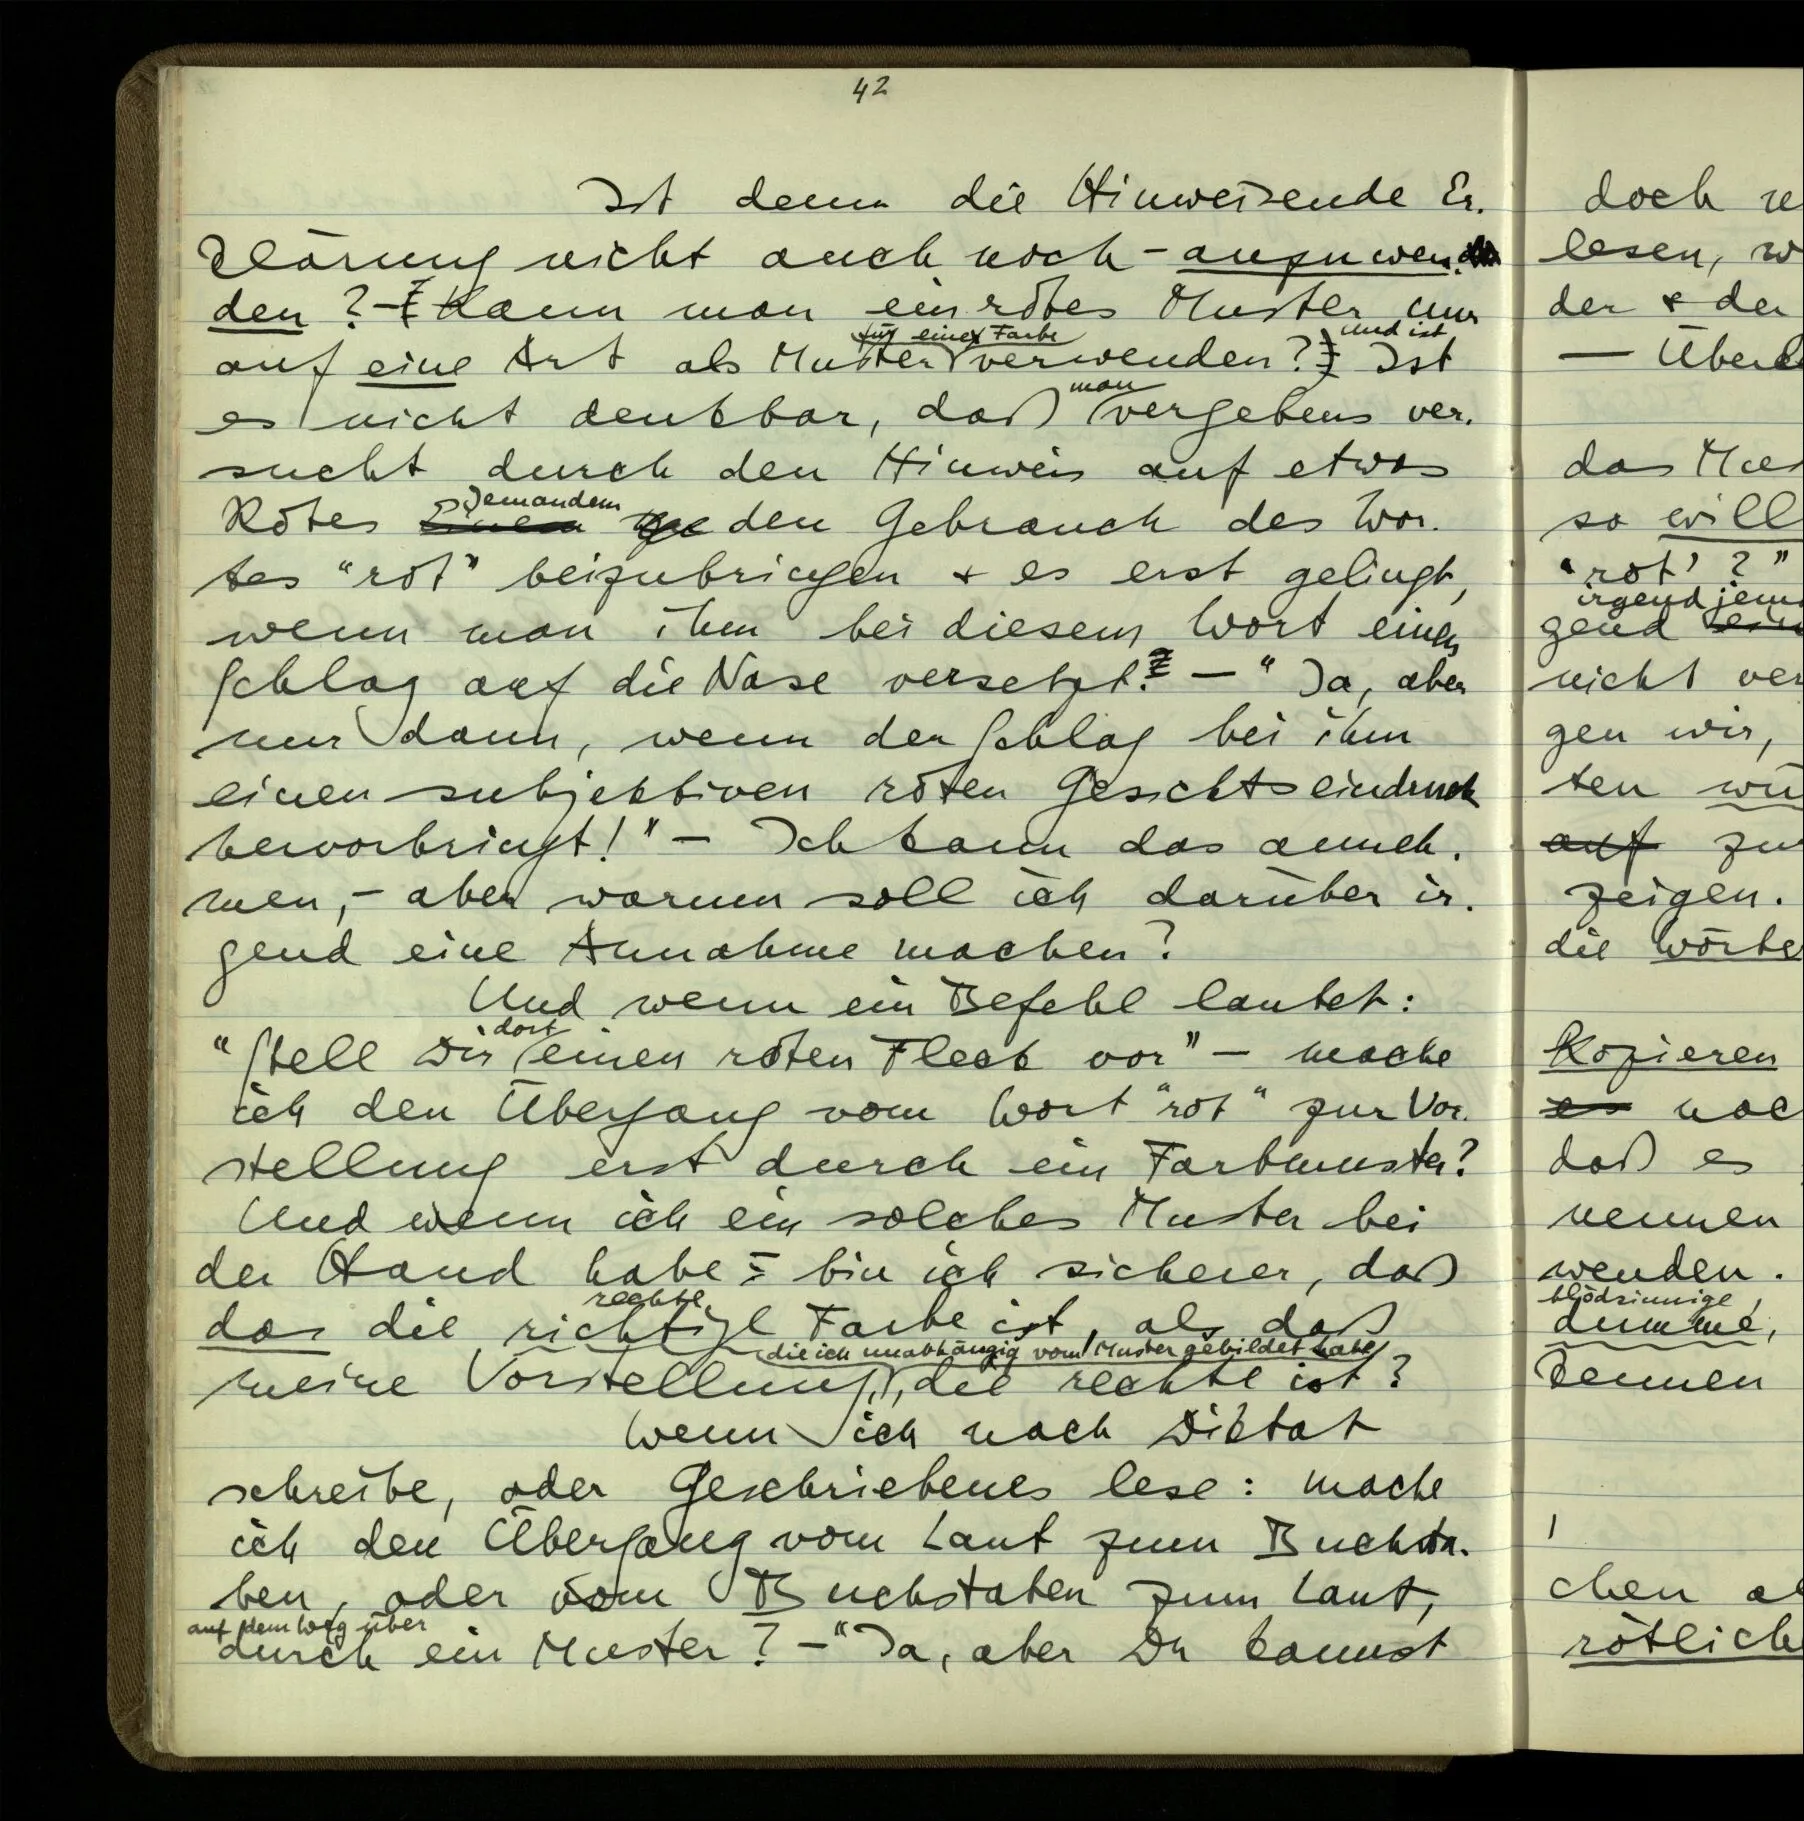 42
Ist denn die Hinweisende Er-
klärung nicht auch noch – anzuwen-
den? – Kann man ein rotes Muster nur
für eine Farbe und ist
auf eine Art als Muster verwenden? Ist
man
es nicht denkbar, daß vergebens ver-
sucht durch den Hinweis auf etwas
jemandem
Rotes einem den Gebrauch des Wor-
tes "rot" beizubringen & es erst gelingt,
wenn man ihm bei diesem Wort einen
Schlag auf die Nase versetzt? – "Ja, aber
nur dann, wenn der Schlag bei ihm
einen subjektiven roten Gesichtseindruck
hervorbringt!" – Ich kann das anneh-
men, – aber warum soll ich darüber ir-
gend eine Annahme machen?
Und wenn ein Befehl lautet:
dort
"Stell Dir einen roten Fleck vor" – mache
ich den Übergang vom Wort "rot" zur Vor-
stellung erst durch ein Farbmuster?
Und wenn ich ein solches Muster bei
der Hand habe – bin ich sicherer, daß
rechte
das die richtige Farbe ist, als daß
die ich unabhängig vom Muster gebildet habe
meine Vorstellung, die rechte ist?
Wenn ich nach Diktat
schreibe, oder Geschriebenes lese: mache
ich den Übergang vom Laut zum Buchsta-
ben, oder vom Buchstaben zum Laut,
auf dem Weg über
durch ein Muster? – "Ja, aber Du kannst
doch
lesen, w
der & der
– Über
das Mus
so will
'rot'?"
irgend jem
gend
nicht ver
gen wir,
ten wü
auf zu
zeigen.
die Worte
Kopieren
es noc
daß es
nennen
wenden.
blödsinnige,
dumme,
kennen
chen al
rötlich